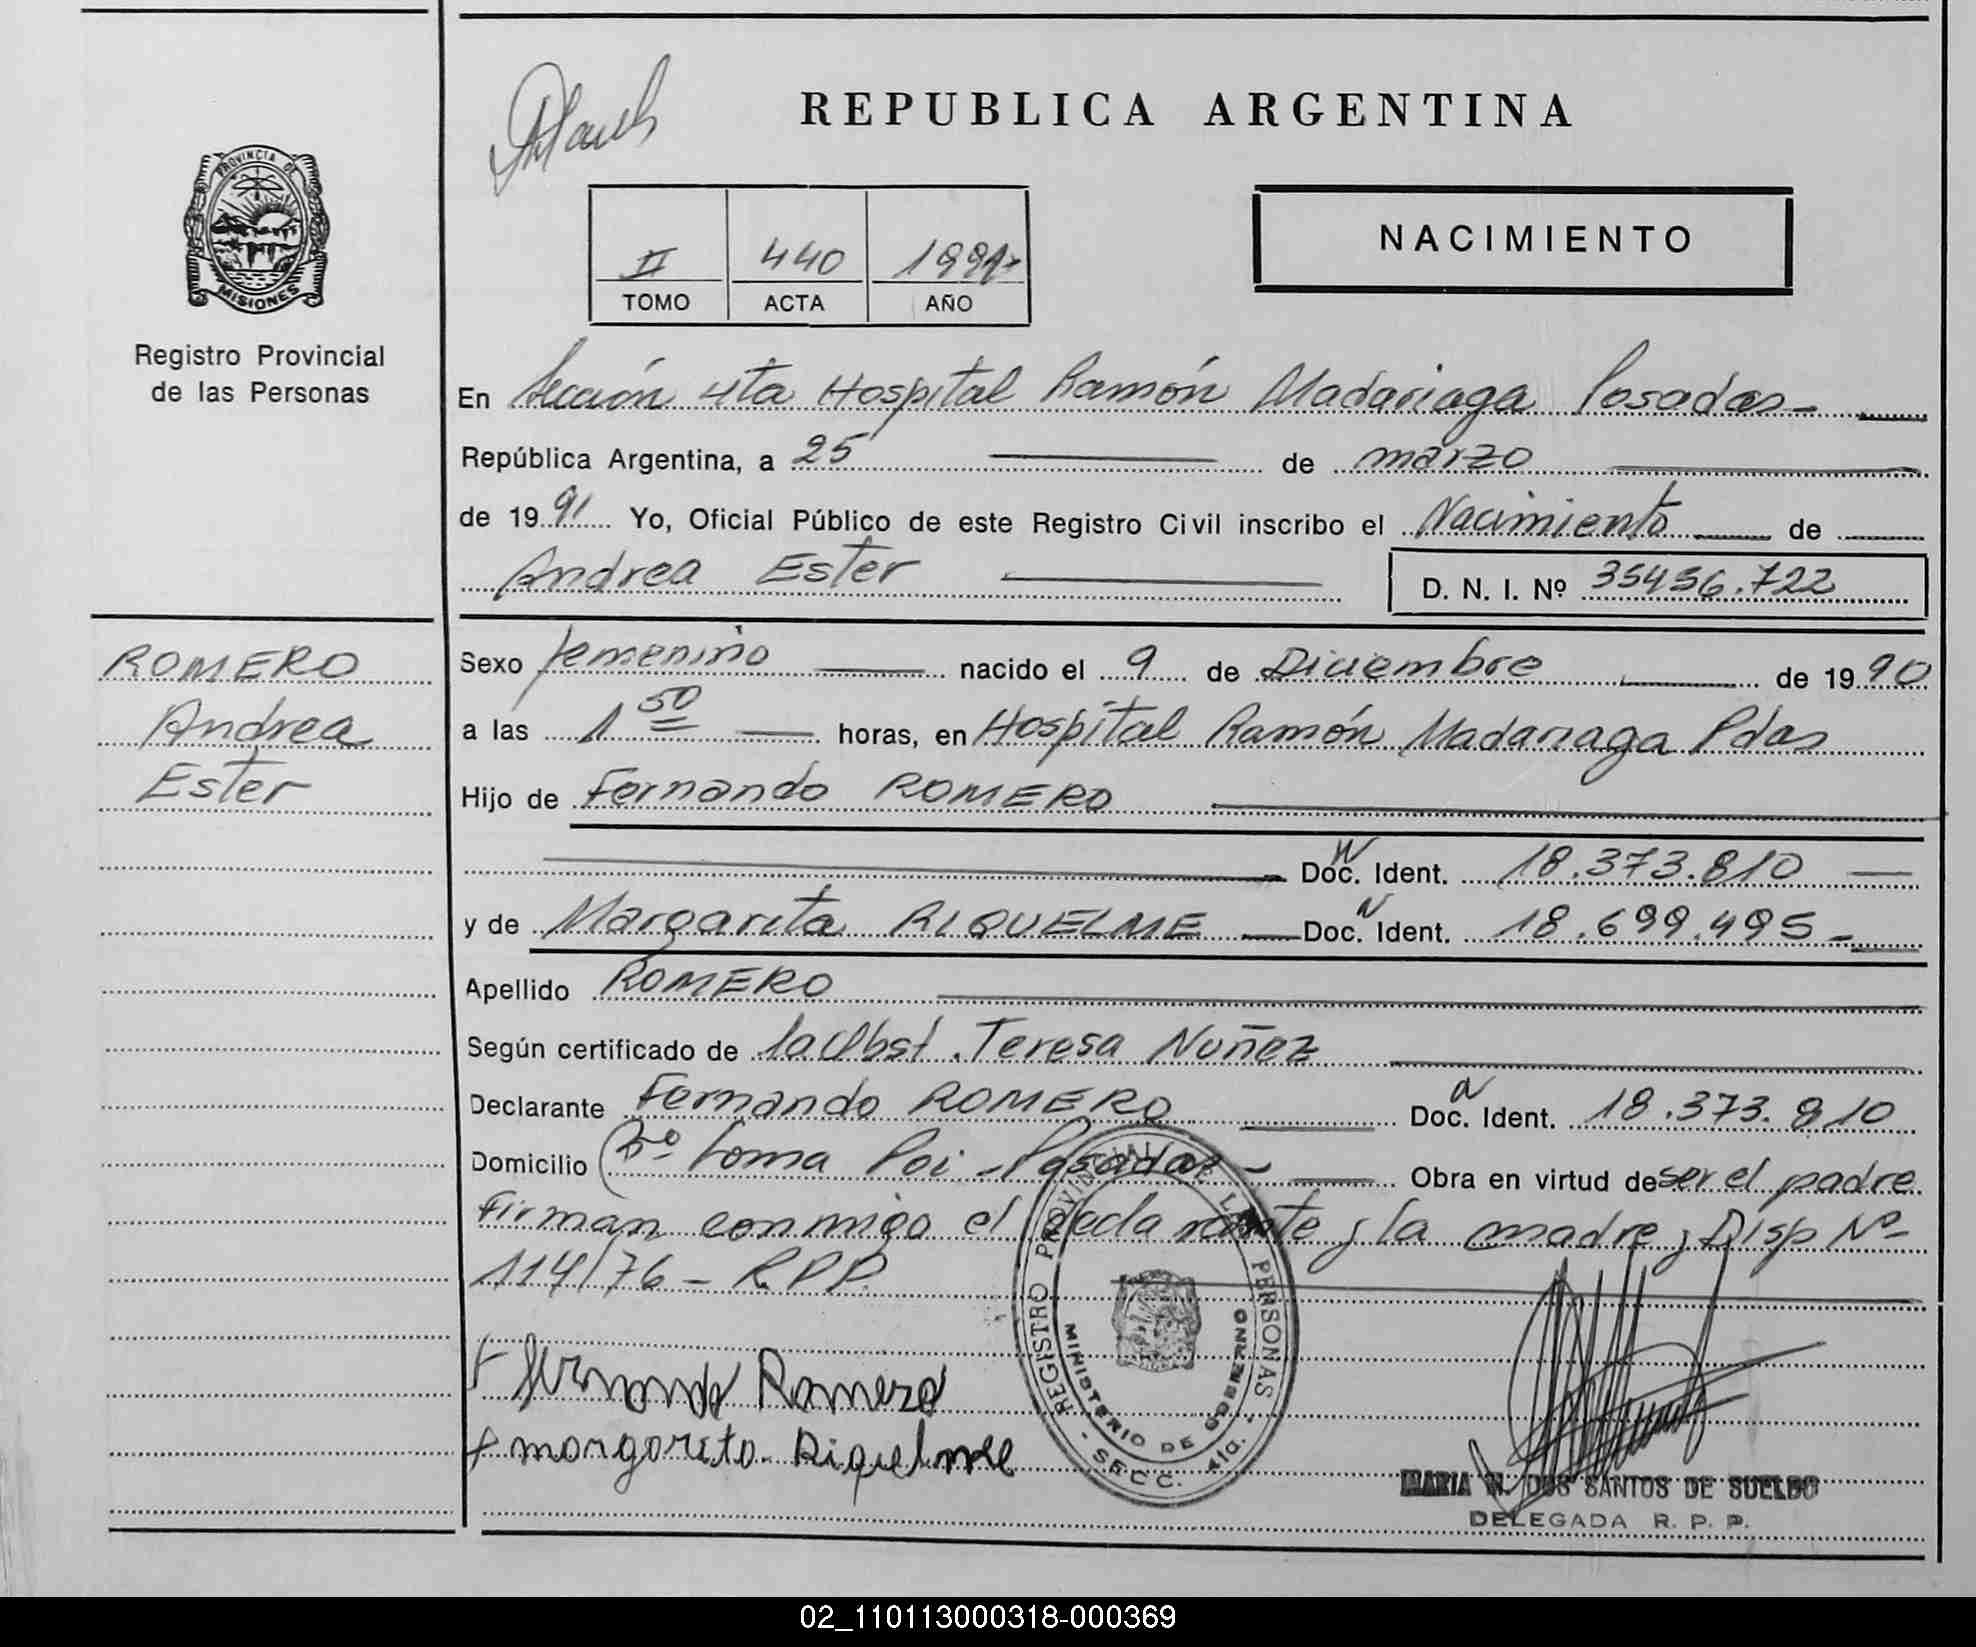 REPUBLICA ARGENTINA
PROVINCIA DE
MISIONES
Registro Provincial
de las Personas
II 440 1991
TOMO ACTA AÑO
NACIMIENTO
En Sección 4ta Hospital Ramón Madariaga Posadas
República Argentina, a 25 de marzo
de 1991 Yo, Oficial Público de este Registro Civil inscribo el Nacimiento de
Andrea Ester D. N. I. Nº 35456.722
ROMERO
Andrea
Ester
Sexo femenino nacido el 9 de Diciembre de 1990
a las 1 50 horas, en Hospital Ramón Madariaga Pdas
Hijo de Fernando ROMERO
Doc. Ident. 18.373.810
y de Margarita RIQUELME Doc. Ident. 18.699.495
Apellido ROMERO
Según certificado de la Obst. Teresa Nuñez
Declarante Fernando ROMERO Doc. Ident. 18.373.810
Domicilio Bº Loma Poi - Posadas - Obra en virtud de ser el padre
Firman conmigo el declarante y la madre, Disp Nº
114/76 - R.P.P.
Fernando Romero
margarita Riquelme
REGISTRO PROVINCIAL DE LAS PERSONAS
MINISTERIO DE GOBIERNO
- SECC. 4ta. -
MARIA N. DOS SANTOS DE SUELDO
DELEGADA R. P. P.
02_110113000318-000369